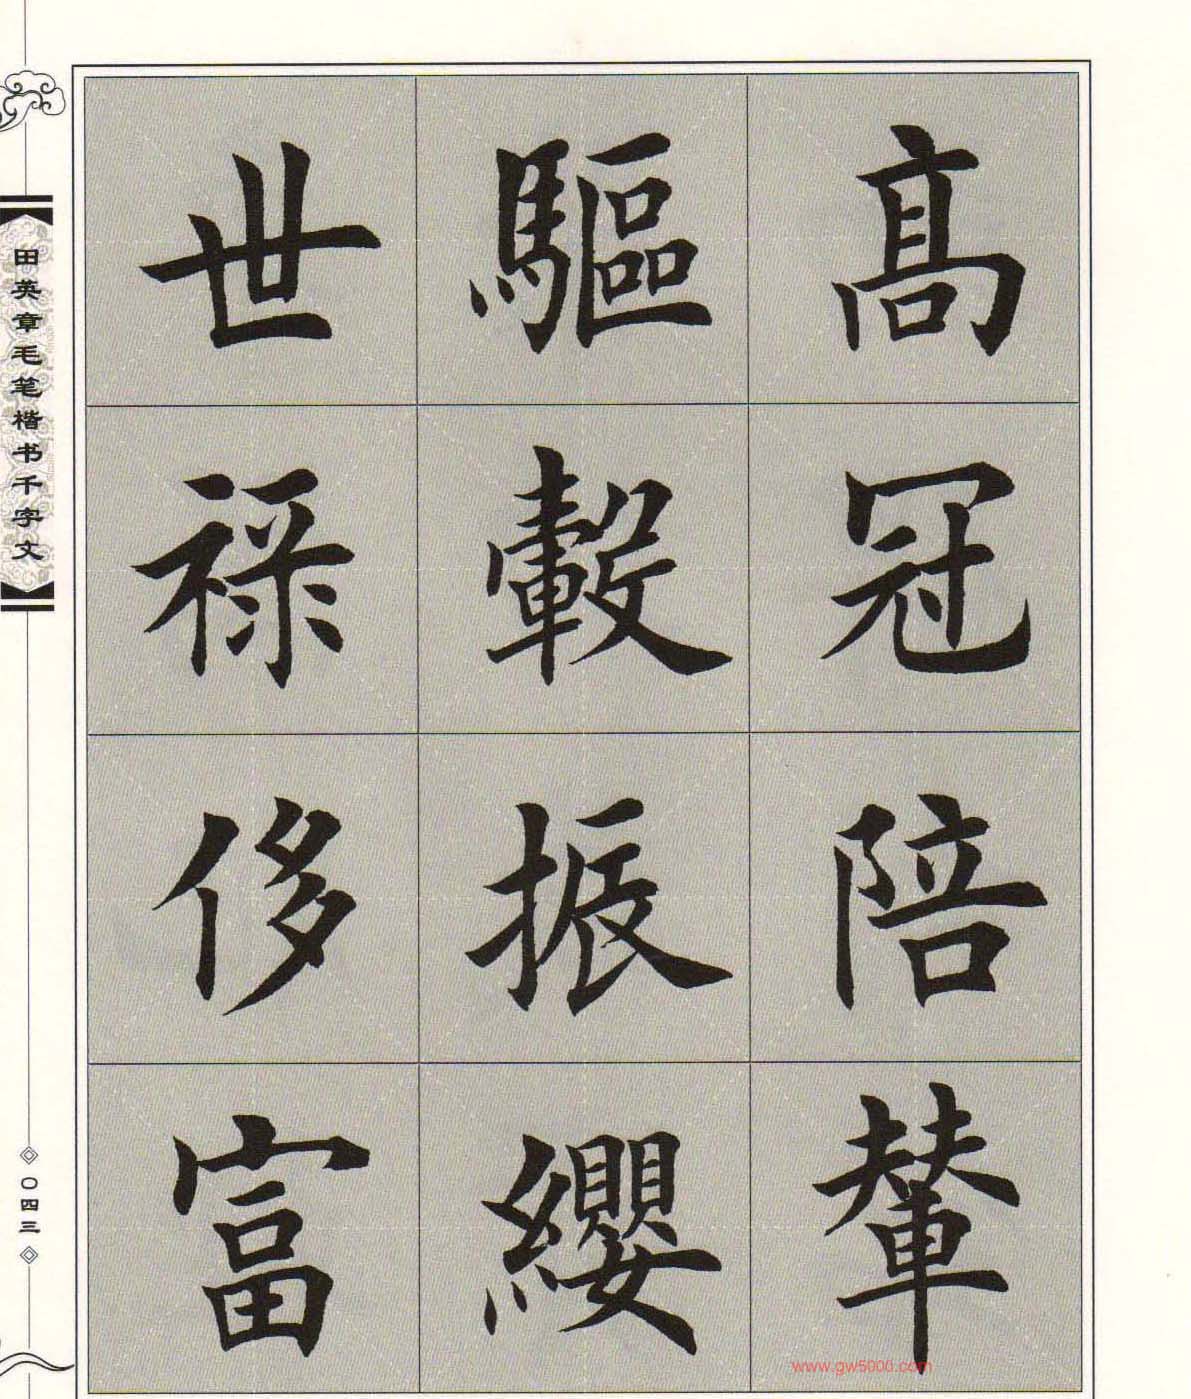 髙冠陪輦
驅轂振纓
世禄侈富
田英章毛笔楷书千字文
〇四三
www.gw5000.com